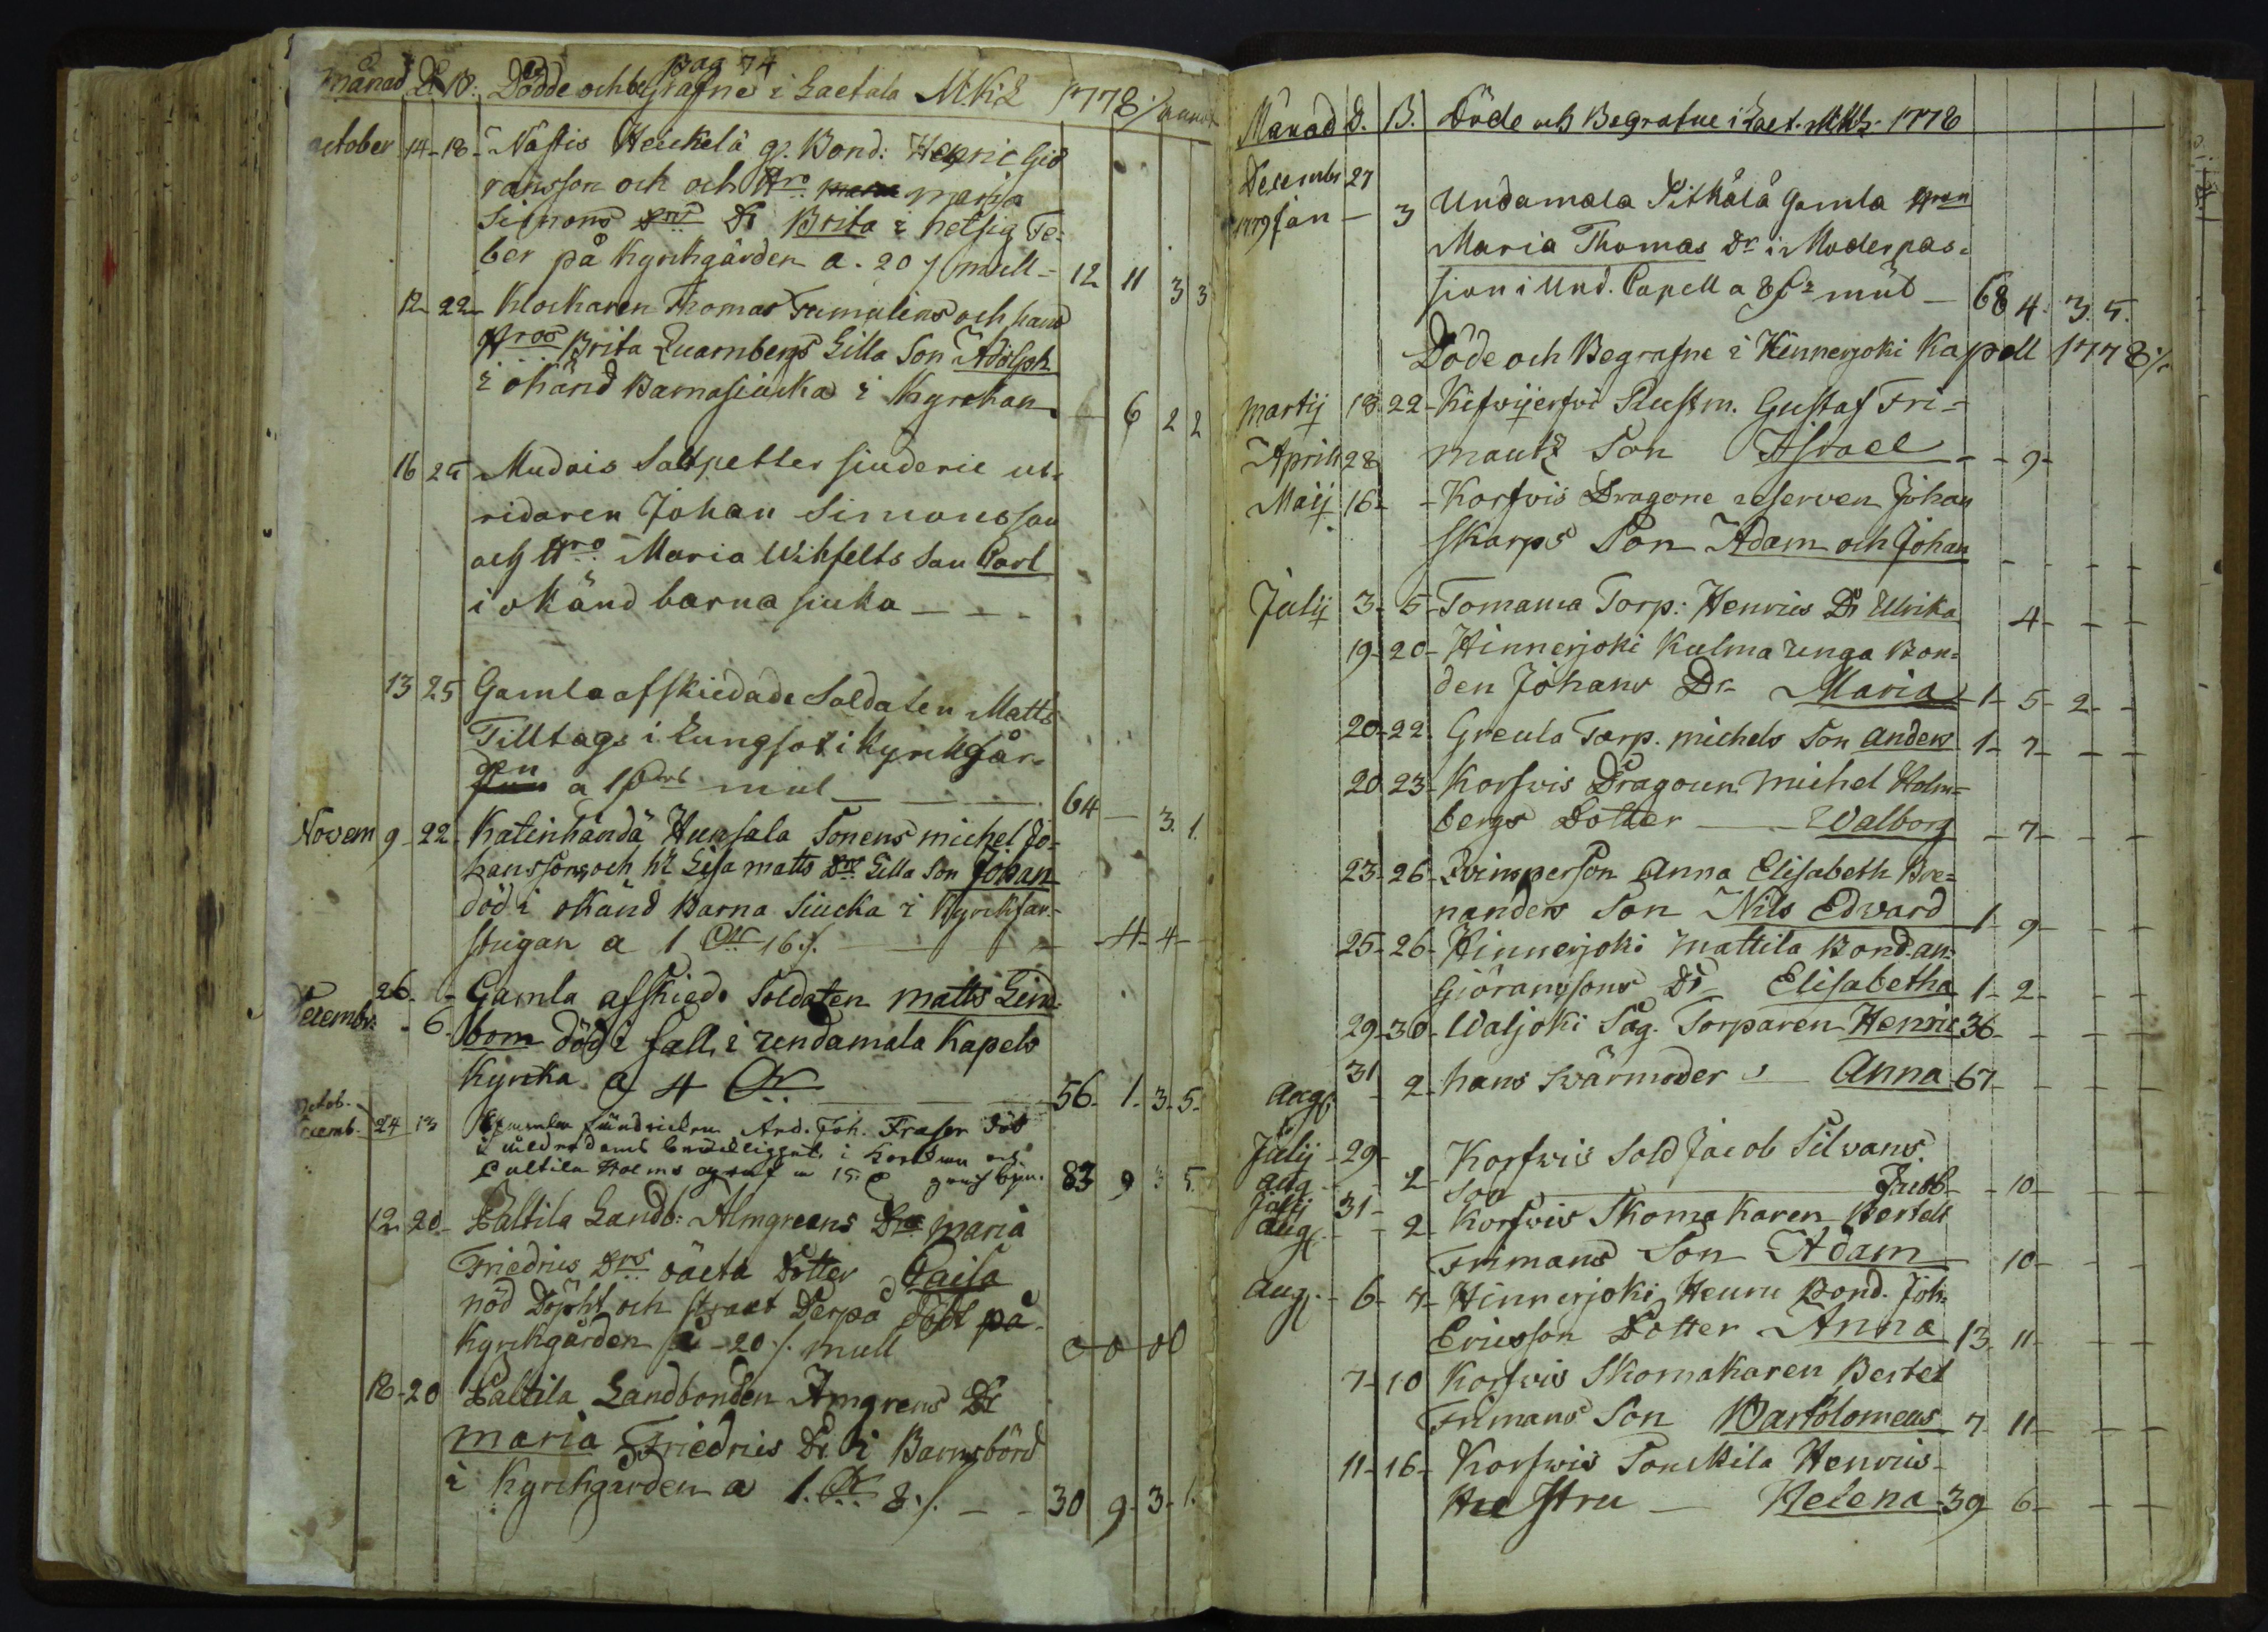 pag 74
Månad D. B. Dödde och begrafne i Laetala MKL 1778 ⁄.
october 14-18- Nästis Heickelä g. Bond: Henric Giö
ransson och och Hro maria
Simons Drs Dr Brita i hetsig Fe-
ber på Kyrkgården a. 20 ⁄ mull - 12 11 3 3
12 22 Klockaren Thomas Tumulins och hans
Hros Brita Quarnbergs Lilla Son Adolph
i okänd Barnasiucka i Kyrckan - 6 2 2
16 25 Mudais Saltpetter siuderie ut-
ridaren Johan Simonsson
och Hro Maria Wihfelts Son Carl
i okänd barna siuka - - -
13 25 Gamla afskiedade Soldaten Matts
Tilltags i Lungsot i Kyrkgår-
den a 1 mul - - - 64 - 3. 1.
Novem 9-22- Katinhändä Hunsala Sonens michel Jo-
hanssons och h: Lisa matts Drs Lilla Son Johan
död i okänd Barna Siucka i Kyrck far-
stugan a 1 Dr 16 ⁄. - - 4- 4-
26. - Gamla afskied. Soldaten matts Lind-
Decembr. - 6- bom död i fall i undamala Kapels
Kyrcka a 4 Dr - - - 56- 1- 3- 5-
octob.
24 13 And. Joh. Fraser död
i
Caltila Holms 15. 83 9 3 5.
12 20- Caltila Landb: Almgreens Dra maria
Friedrics Drs oäcta Dotter Caisa
nöd Döpht och straxt Derpå död på
Kyrkgården a - 20 ⁄. mull 0 - 0 - 00
18-20 Caltila Landbonden Amgrens Dr
maria Friedrics Dr. i Barnsbörd
i Kyrckgården a 1. Dr 8. ⁄. - - 30 9- 3- 1.
Månad D. B. Döde och Begrafne i Laet. MKL 1778
Decembr 27
1779 Jan - 3 Undamala Pitkälä Gamla Hrun
Maria Thomas Dr i Moderpas-
sion i Und. Capell a 8 mûl - 68 4. 3. 5.
Döde och Begrafne i Hinnerjoki Kapell 1778 ⁄.
Martij 18 22- Kifwijerfwi Rustm. Gustaf Fri-
Aprill 28 mantz Son Israel - - 9-
Maij 16- - Korfwis Dragone reserven Johan
Skarps Son Adam och Johan - - - -
Julij 3- 5- Tomama Torp: Henrics Dr Ulrika 4- - -
19-20- Hinnerjoki Kulma unga Bon-
den Johans Dr- Maria 1- 5- 2- -
20-22. Greula Torp. michels Son anders 1- 7- - -
20 23- Korfwis Dragoun michel Holm-
bergs Dotter - Walborg - 7- - -
23-26- Qvinsperson Anna Elisabeth Bre-
nanders Son Nils Edward 1- 9- - -
25-26- Hinnerjoki Mattila Bond. an:
Giöranssons Dr- Elisabetha 1- 2- - -
29-30- Waljoki Såg. Torparen Henric 36- - - -
31
Aug. - 2- hans Swärmoder - Anna 67- - - -
Julij - 29- Korfwis Sold Jacob Silvans
aug - - 2 Son - Jacob - 10- - -
Julij 31-
aug. - - 2- Korfwis Skomakaren Bertels
Frimans Son Adam - 10- - -
Aug. - 6- 7- Hinnerjoki Heuru Bond. Joh.
Ericsson Dotter Anna 13- 11- - -
7-10 Korfwis Skomakaren Bertel
Frimans Son Bartolomeus 7- 11- - -
11-16- Korfwis Henrics
Hustru - Helena - 39 6- - -